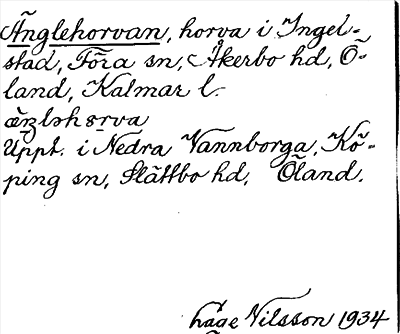 Änglehorvan, horva i Ingel-
stad, Föra sn, Åkerbo hd, Ö-
land, Kalmar l.
Uppt. i Nedra Vannborga, Kö-
ping sn, Slättbo hd, Öland.
Håge Nilsson 1934